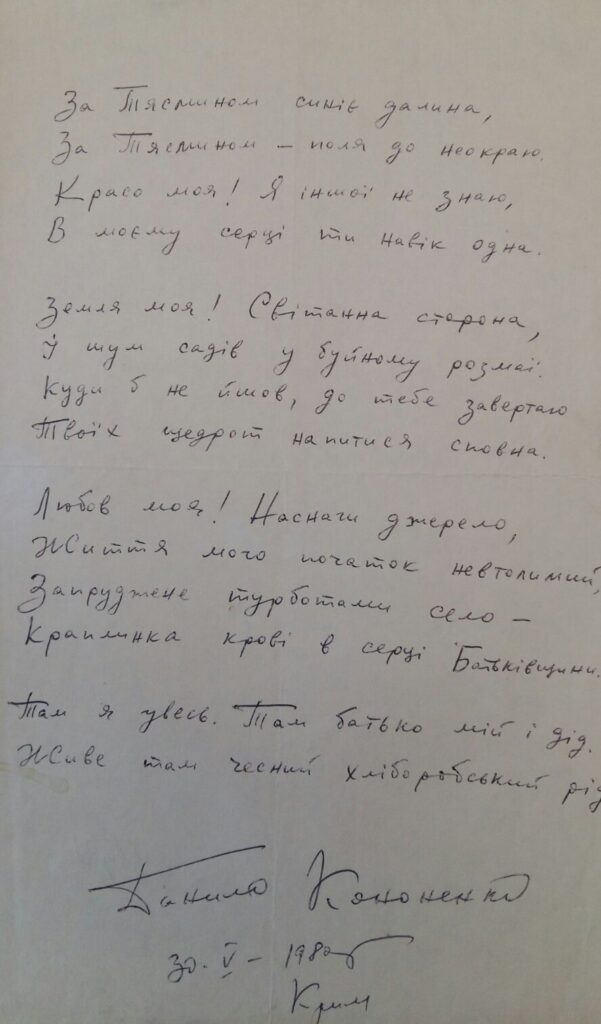 За Тясмином синіє далина,
За Тясмином – поля до неокраю.
Красо моя! Я іншої не знаю,
В моєму серці ти навік одна.
Земля моя! Світанна сторона,
І шум садів у буйному розмаї.
Куди б не йшов, до тебе завертаю
Твоїх щедрот напитися сповна.
Любов моя! Наснаги джерело,
Життя мого початок невтолимий,
Запруджене турботами село –
Краплинка крові в серці Батьківщини.
Там я увесь. Там батько мій і дід.
Живе там чесний хліборобський рід
Данило Кононенко
30. V – 1980
Крим